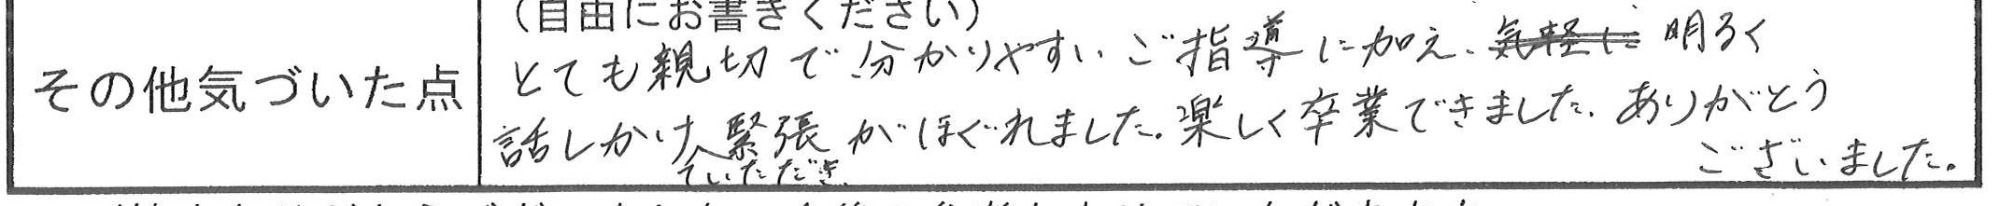 （自由にお書きください）
その他気づいた点
とても親切で分かりやすいご指導に加え、気軽に明るく
話しかけていただき、緊張がほぐれました。楽しく卒業できました。ありがとう
ございました。